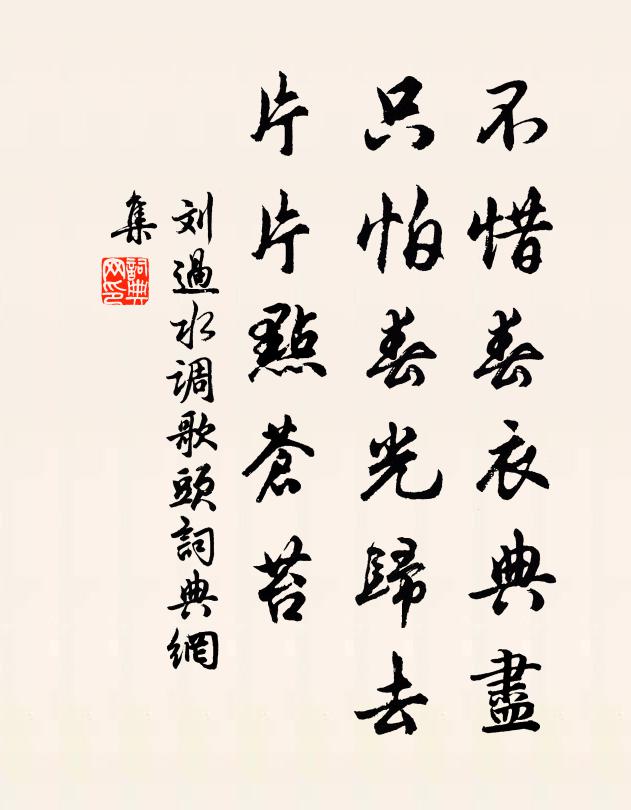 不惜春衣典盡
只怕春光歸去
片片點蒼苔
刘過水调歌頭詞典網
集
詞典网印